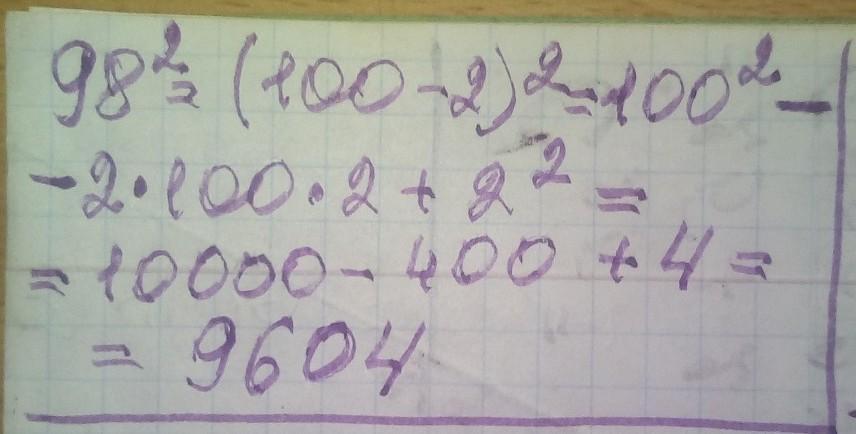 98² = (100 - 2)² = 100² -
- 2 · 100 · 2 + 2² =
= 10000 - 400 + 4 =
= 9604